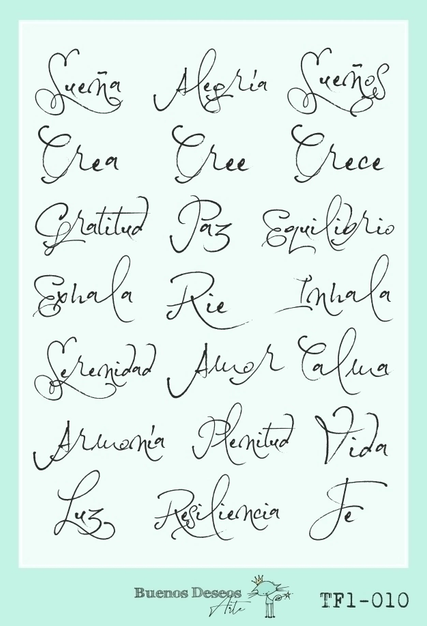 Sueña Alegría Sueños
Crea Cree Crece
Gratitud Paz Equilibrio
Exhala Rie Inhala
Serenidad Amor Calma
Armonía Plenitud Vida
Luz Resiliencia Fe
Buenos Deseos
Arte
TF1-010